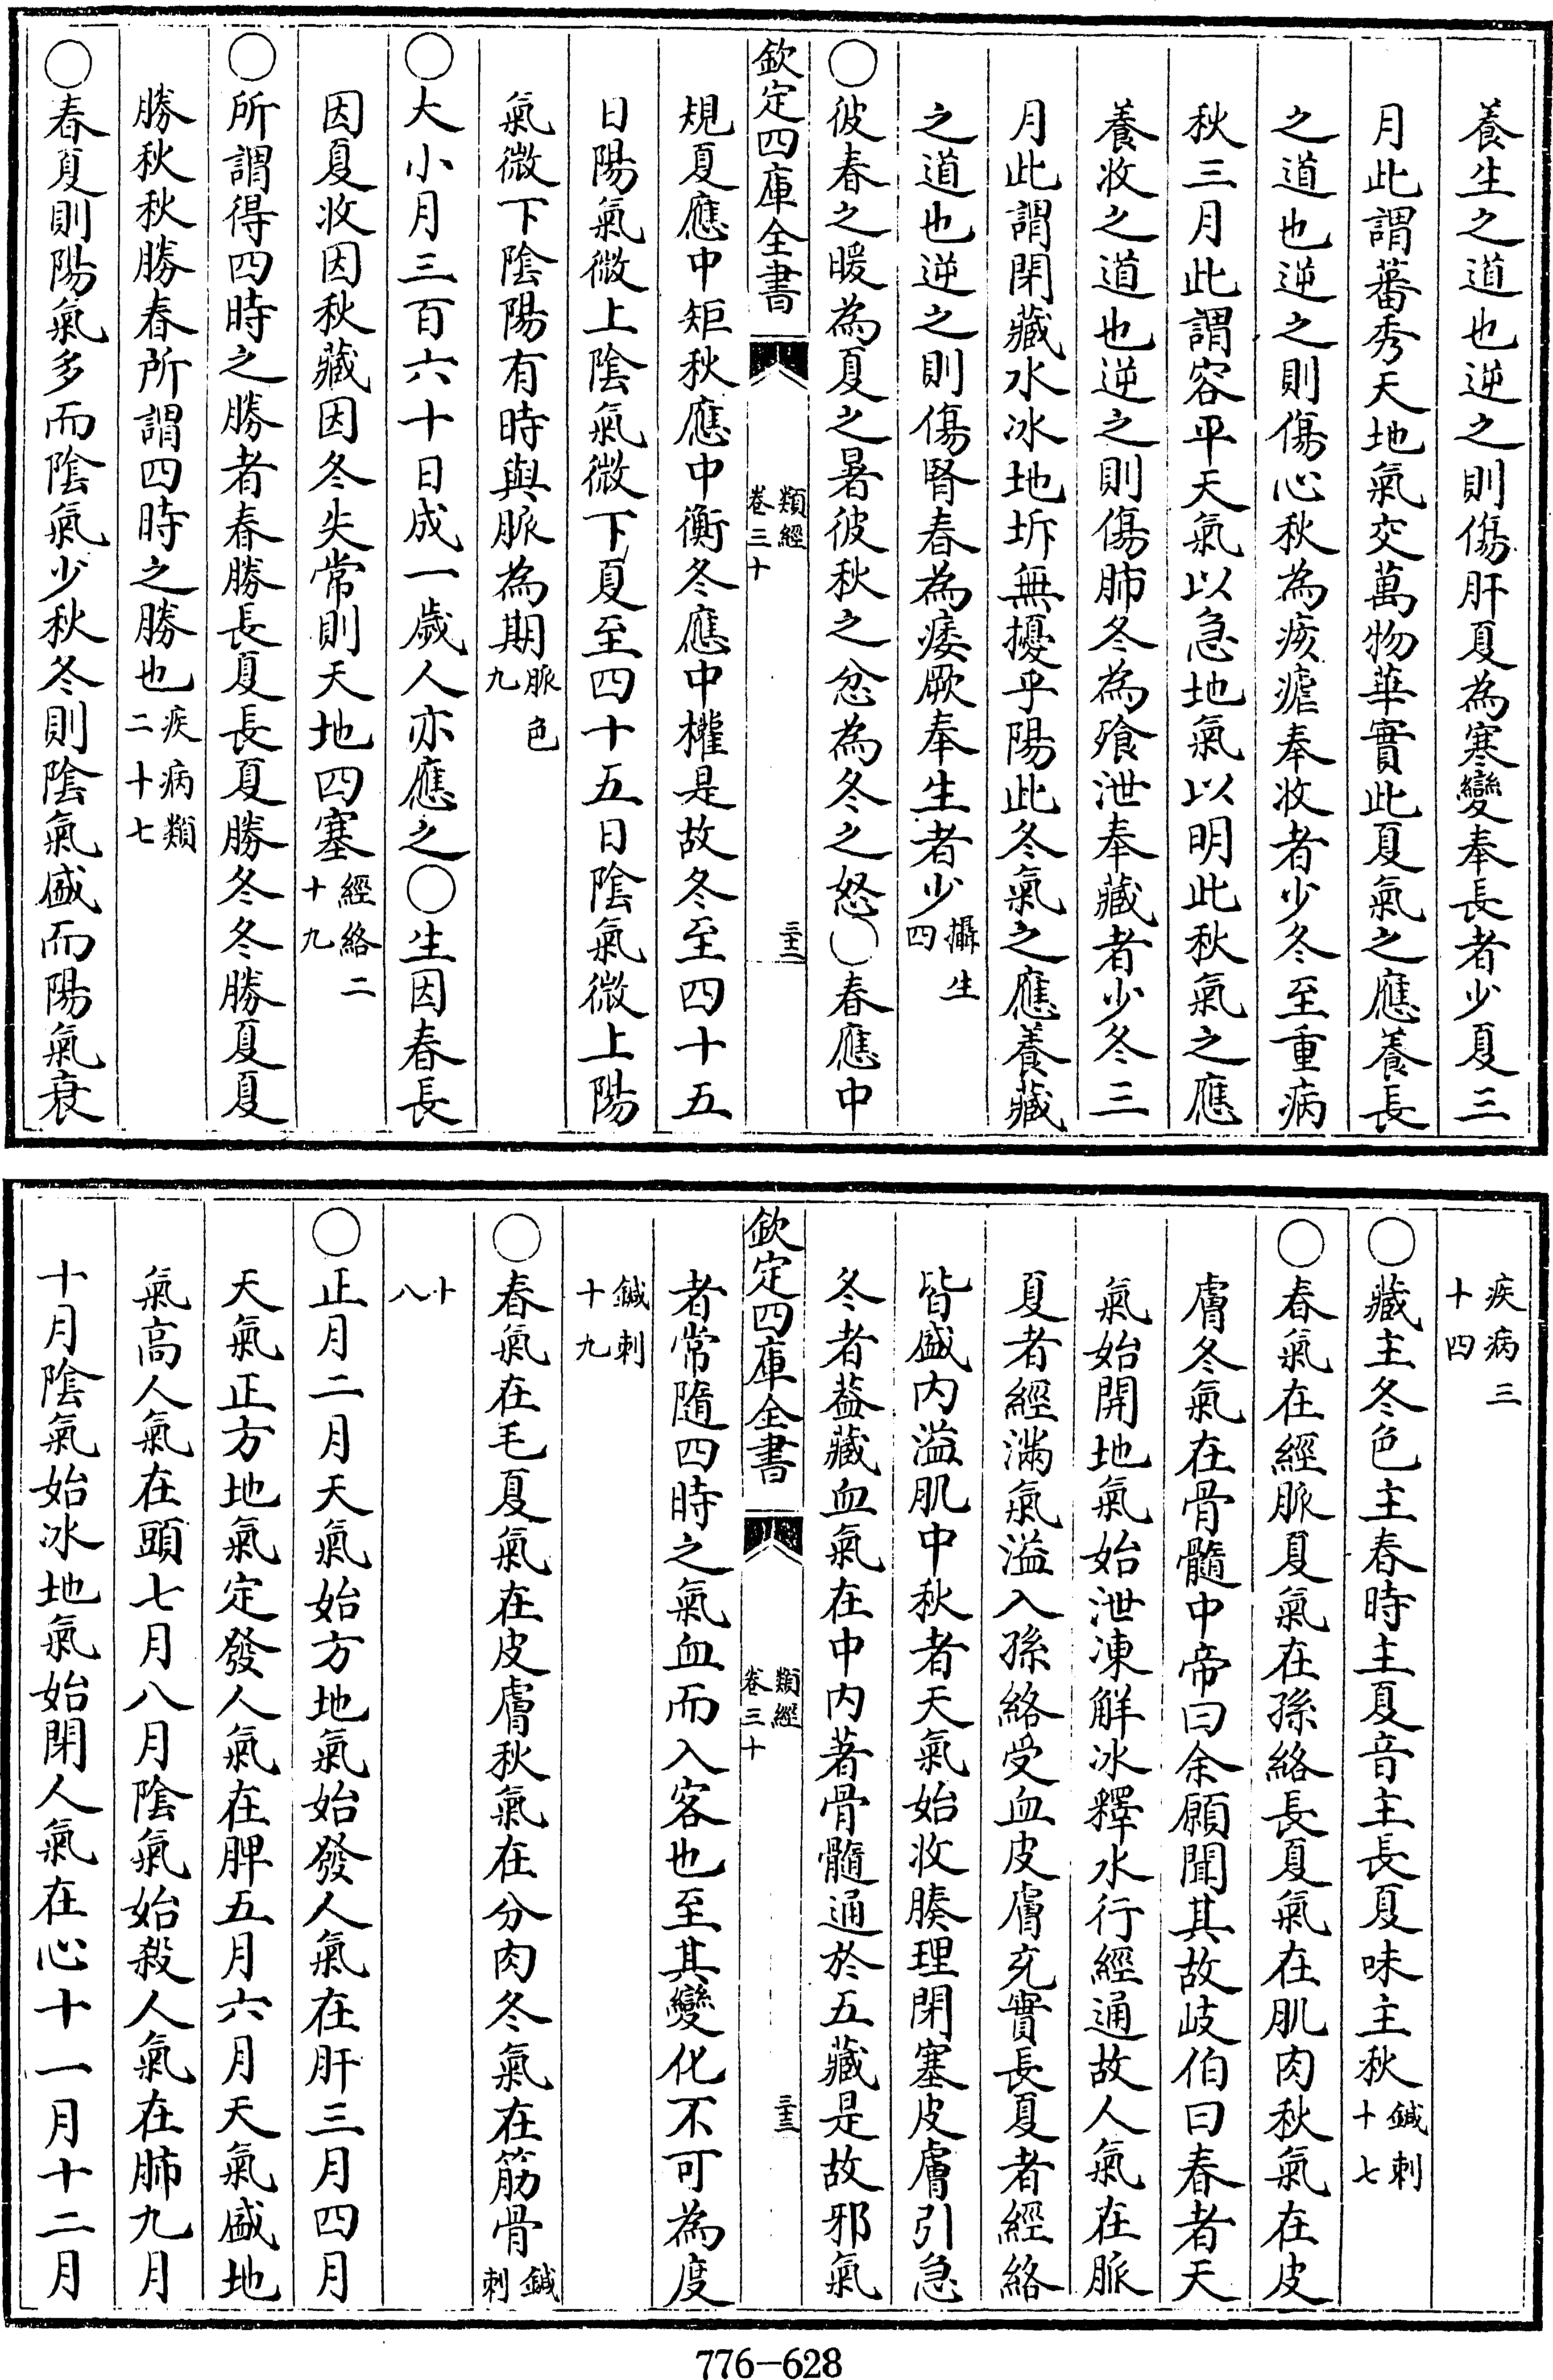 養生之道也逆之則傷肝夏為寒變奉長者少夏三
月此謂蕃秀天地氣交萬物華實此夏氣之應養長
之道也逆之則傷心秋為痎瘧奉收者少冬至重病
秋三月此謂容平天氣以急地氣以明此秋氣之應
養收之道也逆之則傷肺冬為飱泄奉藏者少冬三
月此謂閉藏水冰地坼無擾乎陽此冬氣之應養藏
之道也逆之則傷腎春為痿厥奉生者少攝生四
○彼春之暖為夏之暑彼秋之忿為冬之怒○春應中
欽定四庫全書 類經卷三十 三十二
規夏應中矩秋應中衡冬應中權是故冬至四十五
日陽氣微上陰氣微下夏至四十五日陰氣微上陽
氣微下陰陽有時與脈為期脈色九
○大小月三百六十日成一歲人亦應之○生因春長
因夏收因秋藏因冬失常則天地四塞經絡二十九
○所謂得四時之勝者春勝長夏長夏勝冬冬勝夏夏
勝秋秋勝春所謂四時之勝也疾病類二十七
○春夏則陽氣多而陰氣少秋冬則陰氣盛而陽氣衰
疾病三十四
○藏主冬色主春時主夏音主長夏味主秋鍼刺十七
○春氣在經脈夏氣在孫絡長夏氣在肌肉秋氣在皮
膚冬氣在骨髓中帝曰余願聞其故岐伯曰春者天
氣始開地氣始泄凍解冰釋水行經通故人氣在脈
夏者經滿氣溢入孫絡受血皮膚充實長夏者經絡
皆盛内溢肌中秋者天氣始收腠理閉塞皮膚引急
冬者葢藏血氣在中内著骨髓通於五藏是故邪氣
欽定四庫全書 類經卷三十 三十三
者常隨四時之氣血而入客也至其變化不可為度
鍼刺十九
○春氣在毛夏氣在皮膚秋氣在分肉冬氣在筋骨鍼刺
十八
○正月二月天氣始方地氣始發人氣在肝三月四月
天氣正方地氣定發人氣在脾五月六月天氣盛地
氣高人氣在頭七月八月陰氣始殺人氣在肺九月
十月陰氣始冰地氣始閉人氣在心十一月十二月
776-628